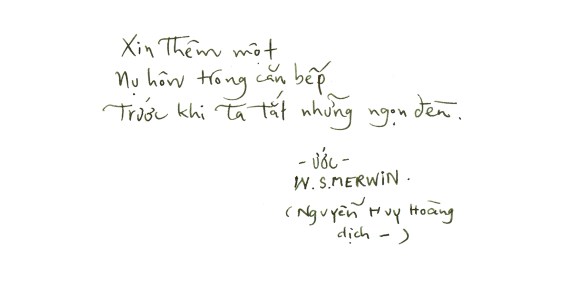 Xin thêm một
Nụ hôn trong căn bếp
Trước khi ta tắt những ngọn đèn.
- ƯỚC -
W.S.MERWIN.
(Nguyễn Huy Hoàng
dịch - )